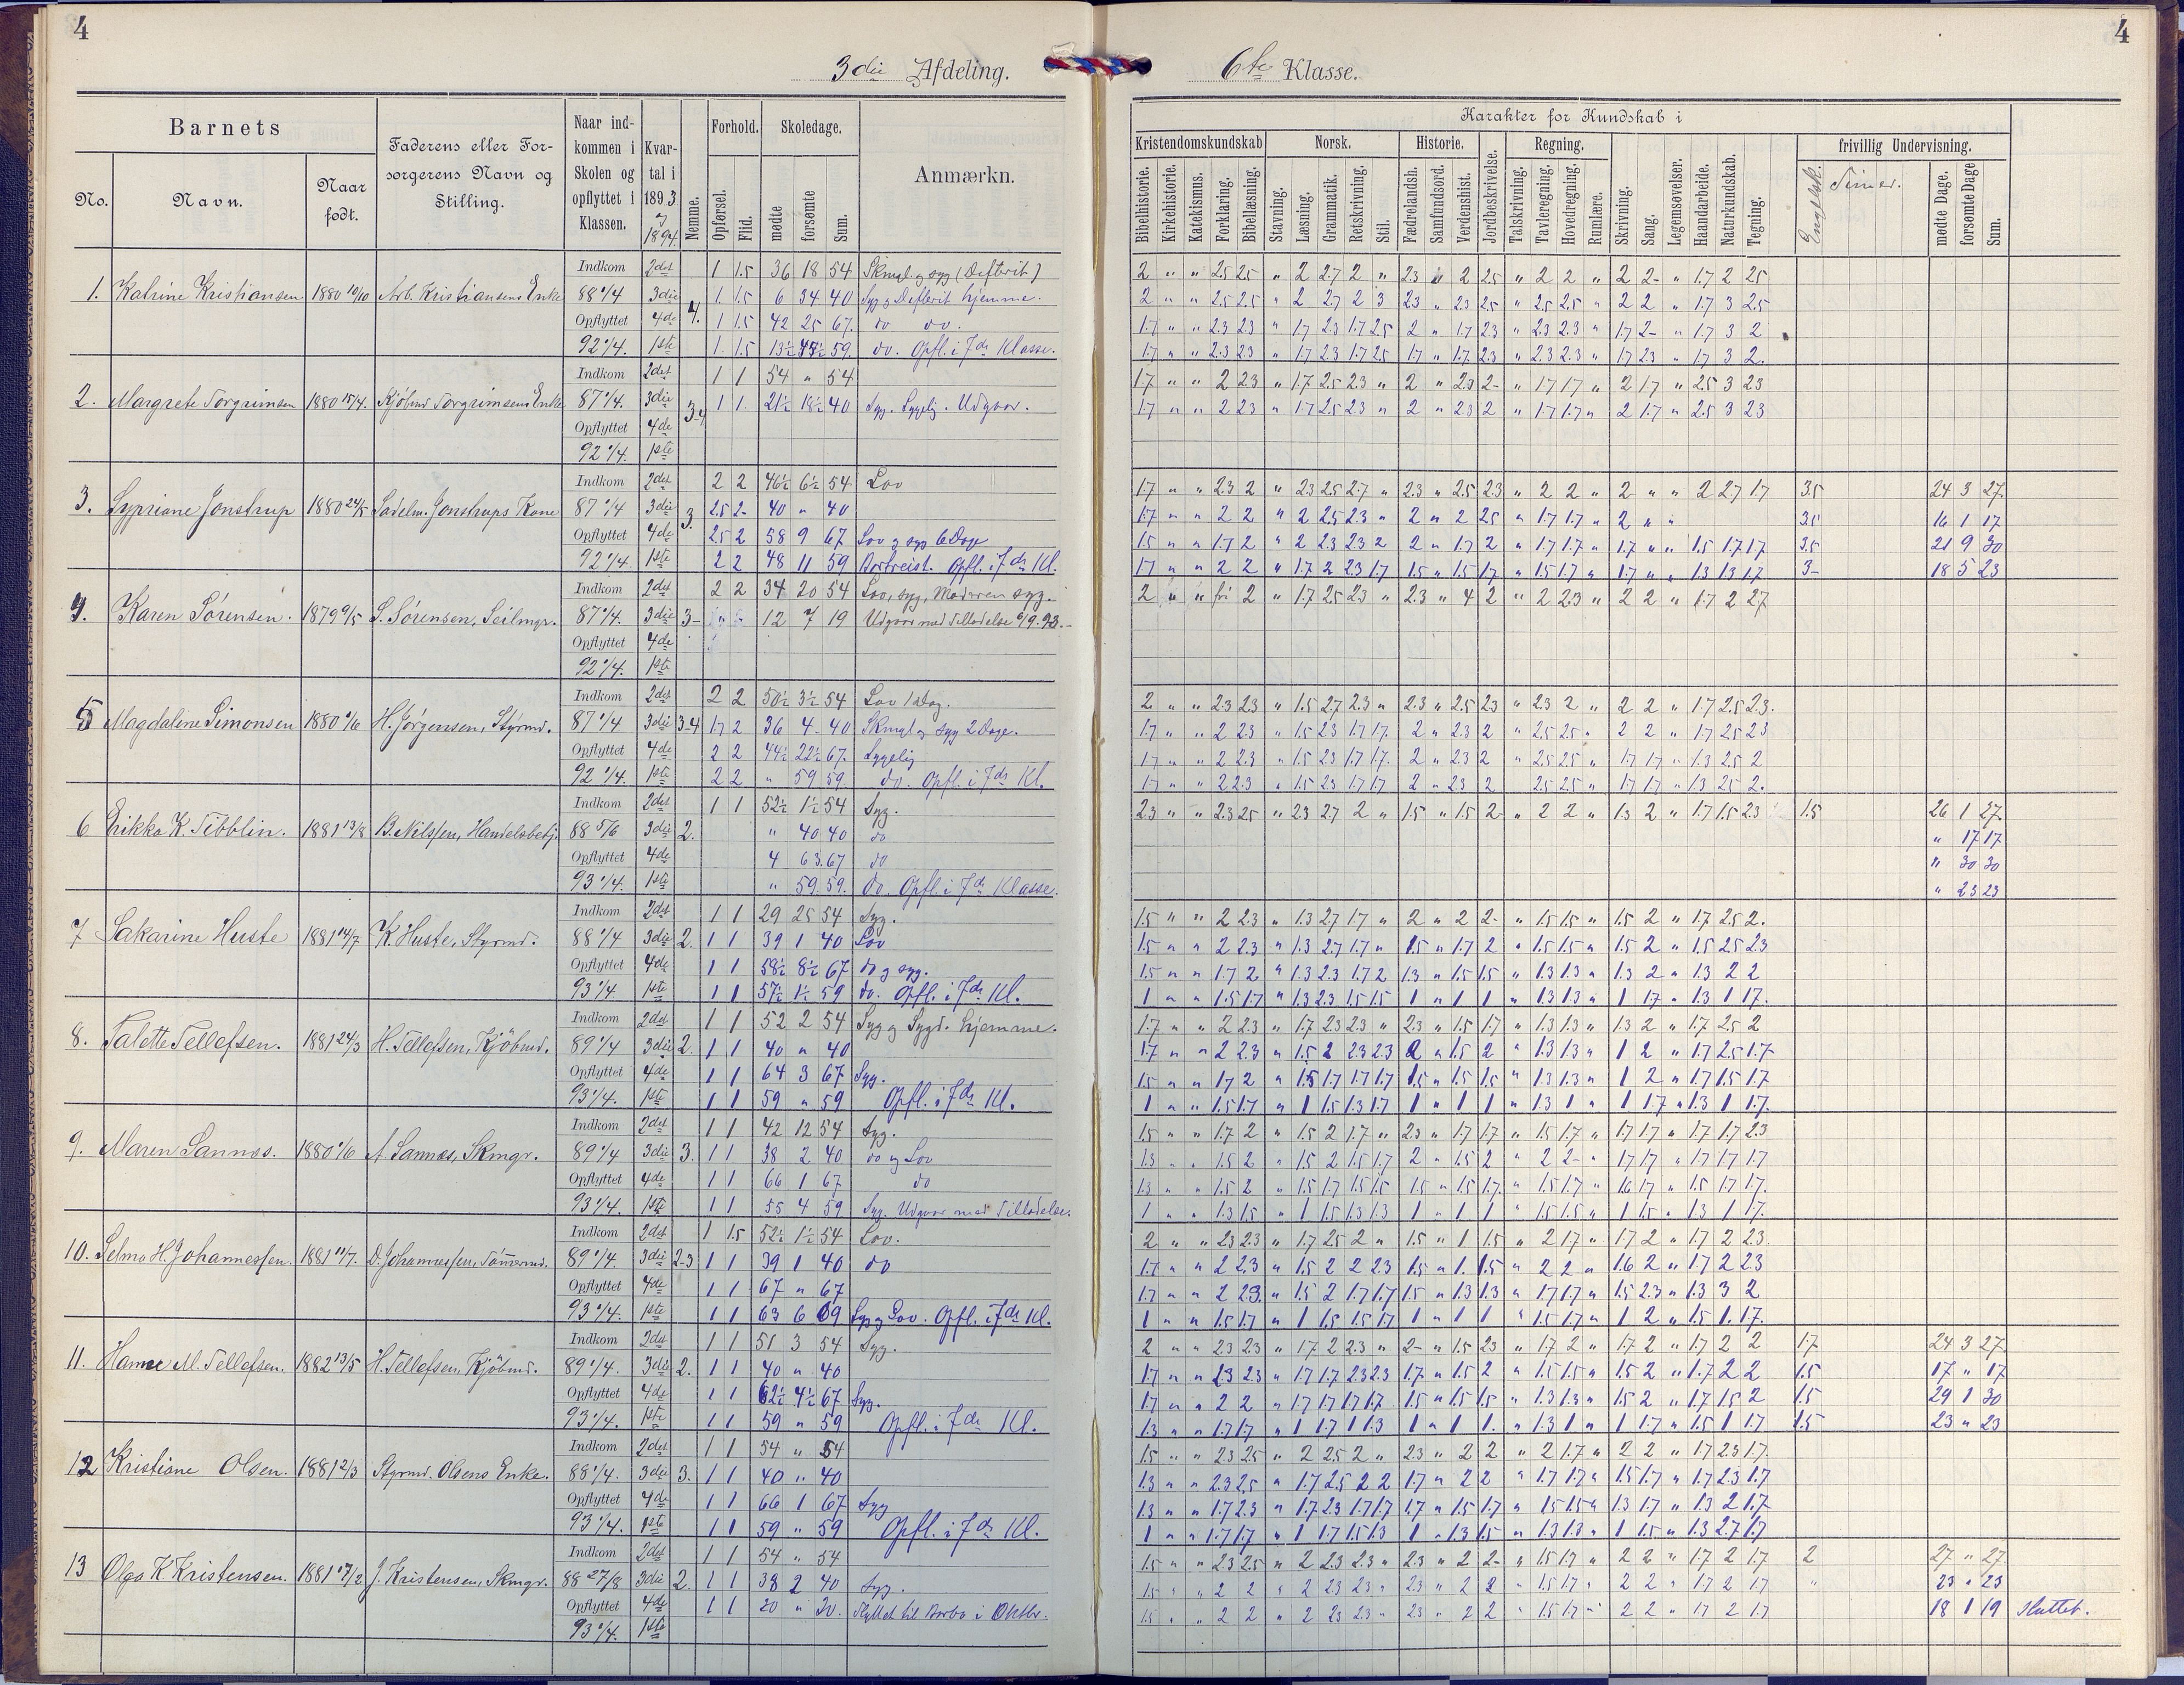 4
3die Afdeling.
Barnets
No.
Navn.
Naar født.
Faderens eller Forsørgerens Navn og Stilling.
Naar indkommen i Skolen og opflyttet i Klassen.
Kvartal i 1893 og 1894.
Nemme.
Forhold.
Opførsel.
Flid.
Skoledage.
mødte
forsømte
Sum.
Anmærkn.
1. Katrine Kristiansen 1880 10/10 Arb. Kristiansens Enke 4.
Indkom 2det 1 1.5 36 18 54 Skmgl. og syg (Defterit)
88 1/4 3die 1 1.5 6 34 40 Syg og Defterit hjemme.
Opflyttet 4de 1 1.5 42 25 67. do do.
92 1/4. 1ste 1 1.5 13½ 45½ 59. do. Opfl. i 7de Klasse.
2. Margrete Torgrimsen 1880 15/4. Kjøbmd Torgrimsens Enke 3-4
Indkom 2det 1 1 54 " 54
87 1/4. 3die 1 1 21½ 18½ 40 Syg. Sygelig. Udgaar.
Opflyttet 4de
92 1/4. 1ste
3. Sypriane Jonstrup 1880 24/5 Sadelm. Jonstrups Kone 3.
Indkom 2det 2 2 46½ 6½ 54 Lov
87 1/4 3die 2.5 2- 40 " 40
Opflyttet 4de 2.5 2 58 9 67 Lov og syg 6 Dage
92 1/4. 1ste 2 2 48 11 59 Bortreist. Opfl. i 7de Kl.
4. Karen Sørensen. 1879 9/5 S. Sørensen, Seilmgr. 3-
Indkom 2det 2 2 34 20 54 Lov, syg, Moderen syg.
87 1/4. 3die 12 7 19 Udgaar med Tilladelse 6/9.93.-
Opflyttet 4de
92 1/4. 1ste
5 Magdaline Simonsen 1880 1/6 H. Jørgensen, Styrmd. 3-4
Indkom 2det 2 2 50½ 3½ 54 Lov 1 Dag.
87 1/4 3die 1.7 2 36 4 40 Skmgl. og syg 2 Dage.
Opflyttet 4de 2 2 44½ 22½ 67. Sygelig
92 1/4. 1ste 2 2 " 59 59. do. Opfl. i 7de Kl.
6 Erikka K. Tibblin. 1881 13/8 B. Nilssen, Handelsbetj. 2.
Indkom 2det 1 1 52½ 1½ 54 Syg.
88 5/6 3die " 40 40 do
Opflyttet 4de 4 63. 67 do
93 1/4. 1ste " 59. 59. do. Opfl. i 7de Klasse.
7 Sakarine Huste 1881 14/7 K. Huste, Styrmd. 2.
Indkom 2det 1 1 29 25 54 Syg.
88 1/4 3die 1 1 39 1 40 Lov
Opflyttet 4de 1 1 58½ 8½ 67 do og syg.
93 1/4 1ste 1 1 57½ 1½ 59 do. Opfl. i 7de Kl.
8. Talette Tellefsen. 1881 24/3 H. Tellefsen, Kjöbmd. 2.
Indkom 2det 1 1 52 2 54 Syg og Sygd. hjemme.
89 1/4 3die 1 1 40 " 40
Opflyttet 4de 1 1 64 3 67 Syg.
93 1/4. 1ste 1 1 59 " 59 Opfl. i 7de Kl.
9. Maren Sannæs. 1880 1/6 A. Sannæs, Skmgr. 3.
Indkom 2det 1 1 42 12 54 Syg.
89 1/4 3die 1 1 38 2 40 do og Lov
Opflyttet 4de 1 1 66 1 67 do
93 1/4. 1ste 1 1 55 4 59 Syg. Udgaar med Tilladelse.
10. Selma H. Johannessen. 1881 11/7. D. Johannessen, Tömmermd. 2-3
Indkom 2det 1 1.5 52½ 1½ 54 Lov.
89 1/4. 3die 1 1 39 1 40 do
Opflyttet 4de 1 1 67 " 67
93 1/4. 1ste 1 1 63 6 69 Syg og Lov. Opfl. i 7de Kl.
11. Hanne M. Tellefsen. 1882 13/5 H. Tellefsen, Kjöbmd. 2.
Indkom 2det 1 1 51 3 54 Syg.
89 1/4. 3die 1 1 40 " 40
Opflyttet 4de 1 1 62½ 4½ 67 Syg.
93 1/4. 1ste 1 1 59 " 59 Opfl. i 7de Kl.
12 Kristiane Olsen. 1881 2/3 Styrmd. Olsens Enke. 3.
Indkom 2det 1 1 54 " 54
88 1/4. 3die 1 1 40 " 40
Opflyttet 4de 1 1 66 1 67 Syg
93 1/4. 1ste 1 1 59 " 59 Opfl. i 7de Kl.
13 Olga K. Kristensen. 1881 17/2 J. Kristensen, Skmgr. 2.
Indkom 2det 1 1 54 " 54
88 27/8 3die 1 1 38 2 40 Syg.
Opflyttet 4de 1 1 20 " 20. Flyttet til Barbo i Oktbr.
93 1/4. 1ste
4
6te Klasse.
Karakter for Kundskab i
Kristendomskundskab
Norsk.
Historie.
Regning.
frivillig Undervisning.
Bibelhistorie. Kirkehistorie. Katekismus. Forklaring. Bibellæsning. Stavning. Læsning. Grammatik. Retskrivning. Stil. Fædrelandsh. Samfundsord. Verdenshist. Jordbeskrivelse. Talskrivning. Tavleregning. Hovedregning. Rumlære. Skrivning. Sang. Legemsøvelser. Haandarbeide. Naturkundskab. Tegning. Engelsk. Timer. mødte Dage. forsømte Dage Sum.
2 " " 2.5 2.5 " 2 2.7 2 " 2.3 " 2 2.5 " 2 2 " 2 2- " 1.7 2 2.5
2 " " 2.5 2.5 " 2 2.7 2 3 2.3 " 2.3 2.5 " 2.5 2.5 " 2 2 " 1.7 3 2.5
1.7 " " 2.3 2.3 " 1.7 2.3 1.7 2.5 2 " 1.7 2.3 " 2.3 2.3 " 1.7 2- " 1.7 3 2
1.7 " " 2.3 2.3 " 1.7 2.3 1.7 2.5 1.7 " 1.7 2.3 " 2.3 2.3 " 1.7 2.3 " 1.7 3 2.
1.7 " " 2 2.3 " 1.7 2.5 2.3 " 2 " 2.3 2- " 1.7 1.7 " 2 1.7 " 2.5 3 2.3
1.7 " " 2 2.3 " 1.7 2.5 2.3 " 2 " 2.3 2 " 1.7 1.7 " 2 1.7 " 2.5 3 2.3
1.7 " " 2.3 2 " 2.3 2.5 2.7 " 2.3 " 2.5 2.3 " 2 2 " 2 " " 2 2.7 1.7 3.5 24 3 27.
1.7 " " 2 2 " 2 2.5 2.3 " 2 " 2 2.5 " 1.7 1.7 " 2 " " 3.5 16 1 17
1.5 " " 1.7 2 " 2 2.3 2.3 2 2 " 1.7 2 " 1.7 1.7 " 1.7 " " 1.5 1.7 1.7 3.5 21 9 30
1.7 " " 2 2 " 1.7 2 2.3 1.7 1.5 " 1.5 1.7 " 1.5 1.7 " 1.7 " " 1.3 1.3 1.7 3- 18 5 23
2 " " fri 2 " 1.7 2.5 2.3 " 2.3 " 4 2 " 2 2.3 " 2 2 " 1.7 2 2.7
2 " " 2.3 2.3 " 1.5 2.7 2.3 " 2.3 " 2.5 2.3 " 2.3 2 " 2 2 " 1.7 2.5 2.3.
1.7 " " 2 2.3 " 1.5 2.3 1.7 1.7. 2 " 2.3 2 " 2.5 2.5 " 2 2 " 1.7 2.5 2.3
1.7 " " 2 2.3 " 1.5 2.3 1.7 1.7. 2 " 2.3 2 " 2.5 2.5 " 1.7 1.7 " 1.3 2.5 2
1.7 " " 2 2.3 " 1.5 2.3 1.7 1.7 2 " 2.3 2 2.5 2.5 " 1.7 1.7 " 1.3 2.5 2.
2.3 " " 2.3 2.5 " 2.3 2.7 2 " 1.5 " 1.5 2 " 2 2 " 1.3 2 " 1.7 1.5 2.3 1.5 26 1 27.
" 17 17
" 30 30
" 23 23
1.5 " " 2 2.3 " 1.3 2.7 1.7 " 2 " 2 2- " 1.5 1.5 " 1.5 2 " 1.7 2.5 2.
1.5 " " 2 2.3 " 1.3 2.7 1.7 " 1.5 " 1.7 2 " 1.5 1.5 " 1.5 2 " 1.5 2.5 2.3
1.5 " " 1.7 2 " 1.3 2.3 1.7 2 1.3 " 1.5 1.5 " 1.3 1.3 " 1.3 2 " 1.3 2 2
1 " " 1.5 1.7 " 1.3 2.3 1.5 1.5 1 " 1 1 " 1.3 1.3 " 1 1.7 " 1.3 1 1.7.
1.7 " " 2 2.3 " 1.7 2.3 2.3 " 2.3 " 1.5 1.7 " 1.3 1.3 " 1.3 2 " 1.7 2.5 2
1.7 " " 2 2.3 " 1.5 2 2.3 2.3 2 " 1.5 2 " 1.3 1.3 " 1 2 " 1.7 2.5 1.7
1.5 " " 1.7 2 " 1.5 1.7 1.7 1.7 1.5 " 1.5 1.5 " 1.3 1.3 " 1 2 " 1.7 1.5 1.7
1 " " 1.5 1.7 " 1 1.5 1.3 1.7 1 " 1 1 " 1.3 1 " 1 1.7 " 1.3 1 1.7.
1.5 " " 1.7 2 " 1.5 2 1.7 " 2.3 " 1.7 1.7 " 1.5 1.7 " 1.7 1.7 " 1.7 1.7 2.3
1.3 " " 1.5 2 " 1.5 2 1.5 1.7 2 " 1.5 2 " 2 2- " 1.7 1.7 " 1.7 1.7 1.7
1.3 " " 1.5 2 " 1.5 1.7 1.5 1.5 1.5 " 1.5 1.7. " 1.5 1.7 " 1.6 1.7 " 1.5 1.7 1.7.
1 " " 1.3 1.5 " 1 1.5 1.3 1.3 1 " 1 1 " 1.5 1.5 " 1 1.5 " 1.3 1 1.7.
2 " " 2.3 2.3 " 1.7 2.5 2 " 1.5 " 1 1.5 " 2 1.7 " 1.7 2 " 1.7 2 2.3
1.7 " " 2 2.3 " 1.5 2 2 2.3 1.5 " 1. 1.5 " 2 2 " 1.6 2 " 1.7 2 2.3
1.7 " " 2 2.3. " 1.5 2 1.7 1.7 1.5 " 1.3 1.3 " 1.7 1.7 " 1.5 2.3 " 1.3 3 2
1 " " 1.5 1.7 " 1 1.5 1.5 1.7 1 " 1 1 " 1.5 1.7 " 1 2 " 1.5 1. 1.7.
2 " " 2.3 2.3 " 1.7 2 2.3 " 2- " 1.5 2.3 " 1.7 2 " 1.7 2 " 1.7 2 2 1.7 24 3 27.
1.7 " " 2.3 2.3 " 1.7 1.7 2.3 2.3 1.7 " 1.5 2 " 1.5 1.5 " 1.5 2 " 1.7 2 2 1.5 17 " 17
1.7 " " 2 2 " 1.7 1.7 1.7 1.7 1.5 " 1.5 1.5 " 1.3 1.3 " 1.5 2 " 1.7 1.5 2 1.5 29 1 30
1.3 " " 1.7 1.7 " 1 1.7 1 1.3 1 " 1 1. " 1.3 1 " 1 1.7 " 1.5 1 1.7 1.5 23 " 23
1.5 " " 2.3 2.5 " 2 2.5 2 " 2.3 " 2 2 " 2 1.7 " 2 2 " 1.7 2.3 1.7.
1.3 " " 2.3 2.5 " 1.7 2.5 2 2 1.7 " 2 2 " 1.7 1.7 " 1.5 1.7 " 1.7 2.3 1.7
1.3 " " 1.7 2.3 " 1.7 2.3 1.7 1.7 1.7 " 1.5 1.7 " 1.5 1.5 " 1.3 1.7 " 1.3 2 1.7
1 " " 1.7 1.7 " 1 1.7 1.5 1.3 1 " 1.3 1.5 " 1.3 1.3 " 1 1.5 " 1.3 2.7 1.7
1.5 " " 2.3 2.5 " 2 2.3 2.3 " 2.3 " 2 2- " 1.5 1.7 " 2 2 " 1.7 2 1.7 2 27 " 27.
1.5 " " 2 2 " 2 2.3 2.3 " 2.3 " 2 2 " 1.5 1.7 " 2 2 " 1.7 2 1.7 " 23 " 23
1.5 " " 2 2 " 2 2.3 2.3 " 2.3 " 2 2 " 1.5 1.7 " 2 2 " 1.7 2 1.7 18 1 19 sluttet.